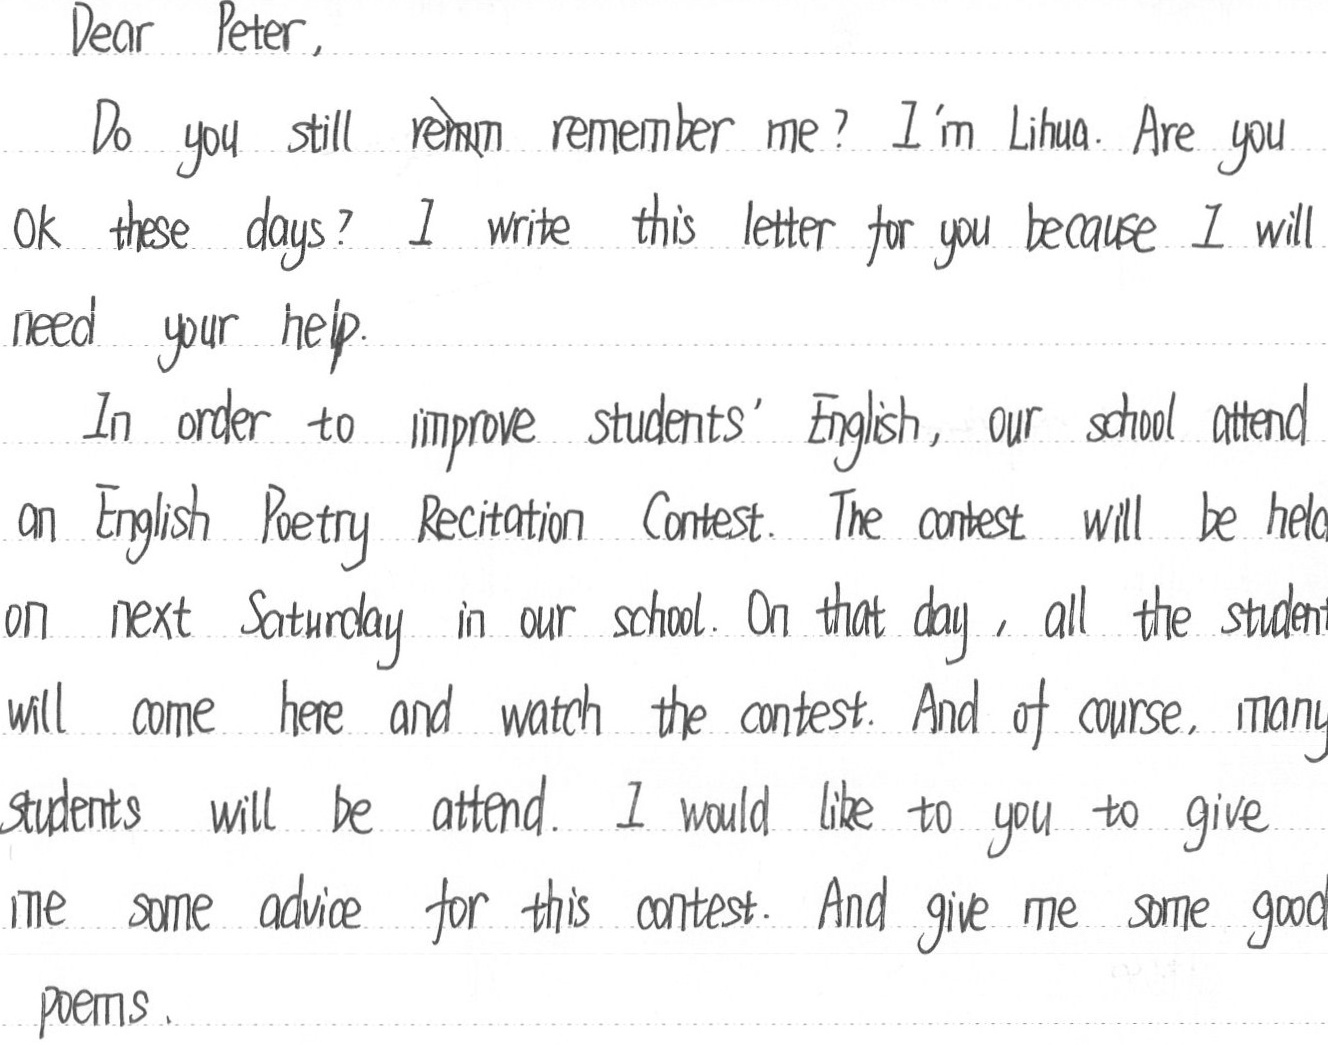 Dear Peter,
Do you still remember me? I'm Lihua. Are you
Ok these days? I write this letter for you because I will
need your help.
In order to improve students' English, our school attend
an English Poetry Recitation Contest. The contest will be held
on next Saturday in our school. On that day, all the student
will come here and watch the contest. And of course, many
students will be attend. I would like to you to give
me some advice for this contest. And give me some good
poems.